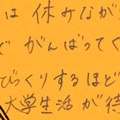 は休みながら
でがんばってく
びっくりするほど
大学生活が待